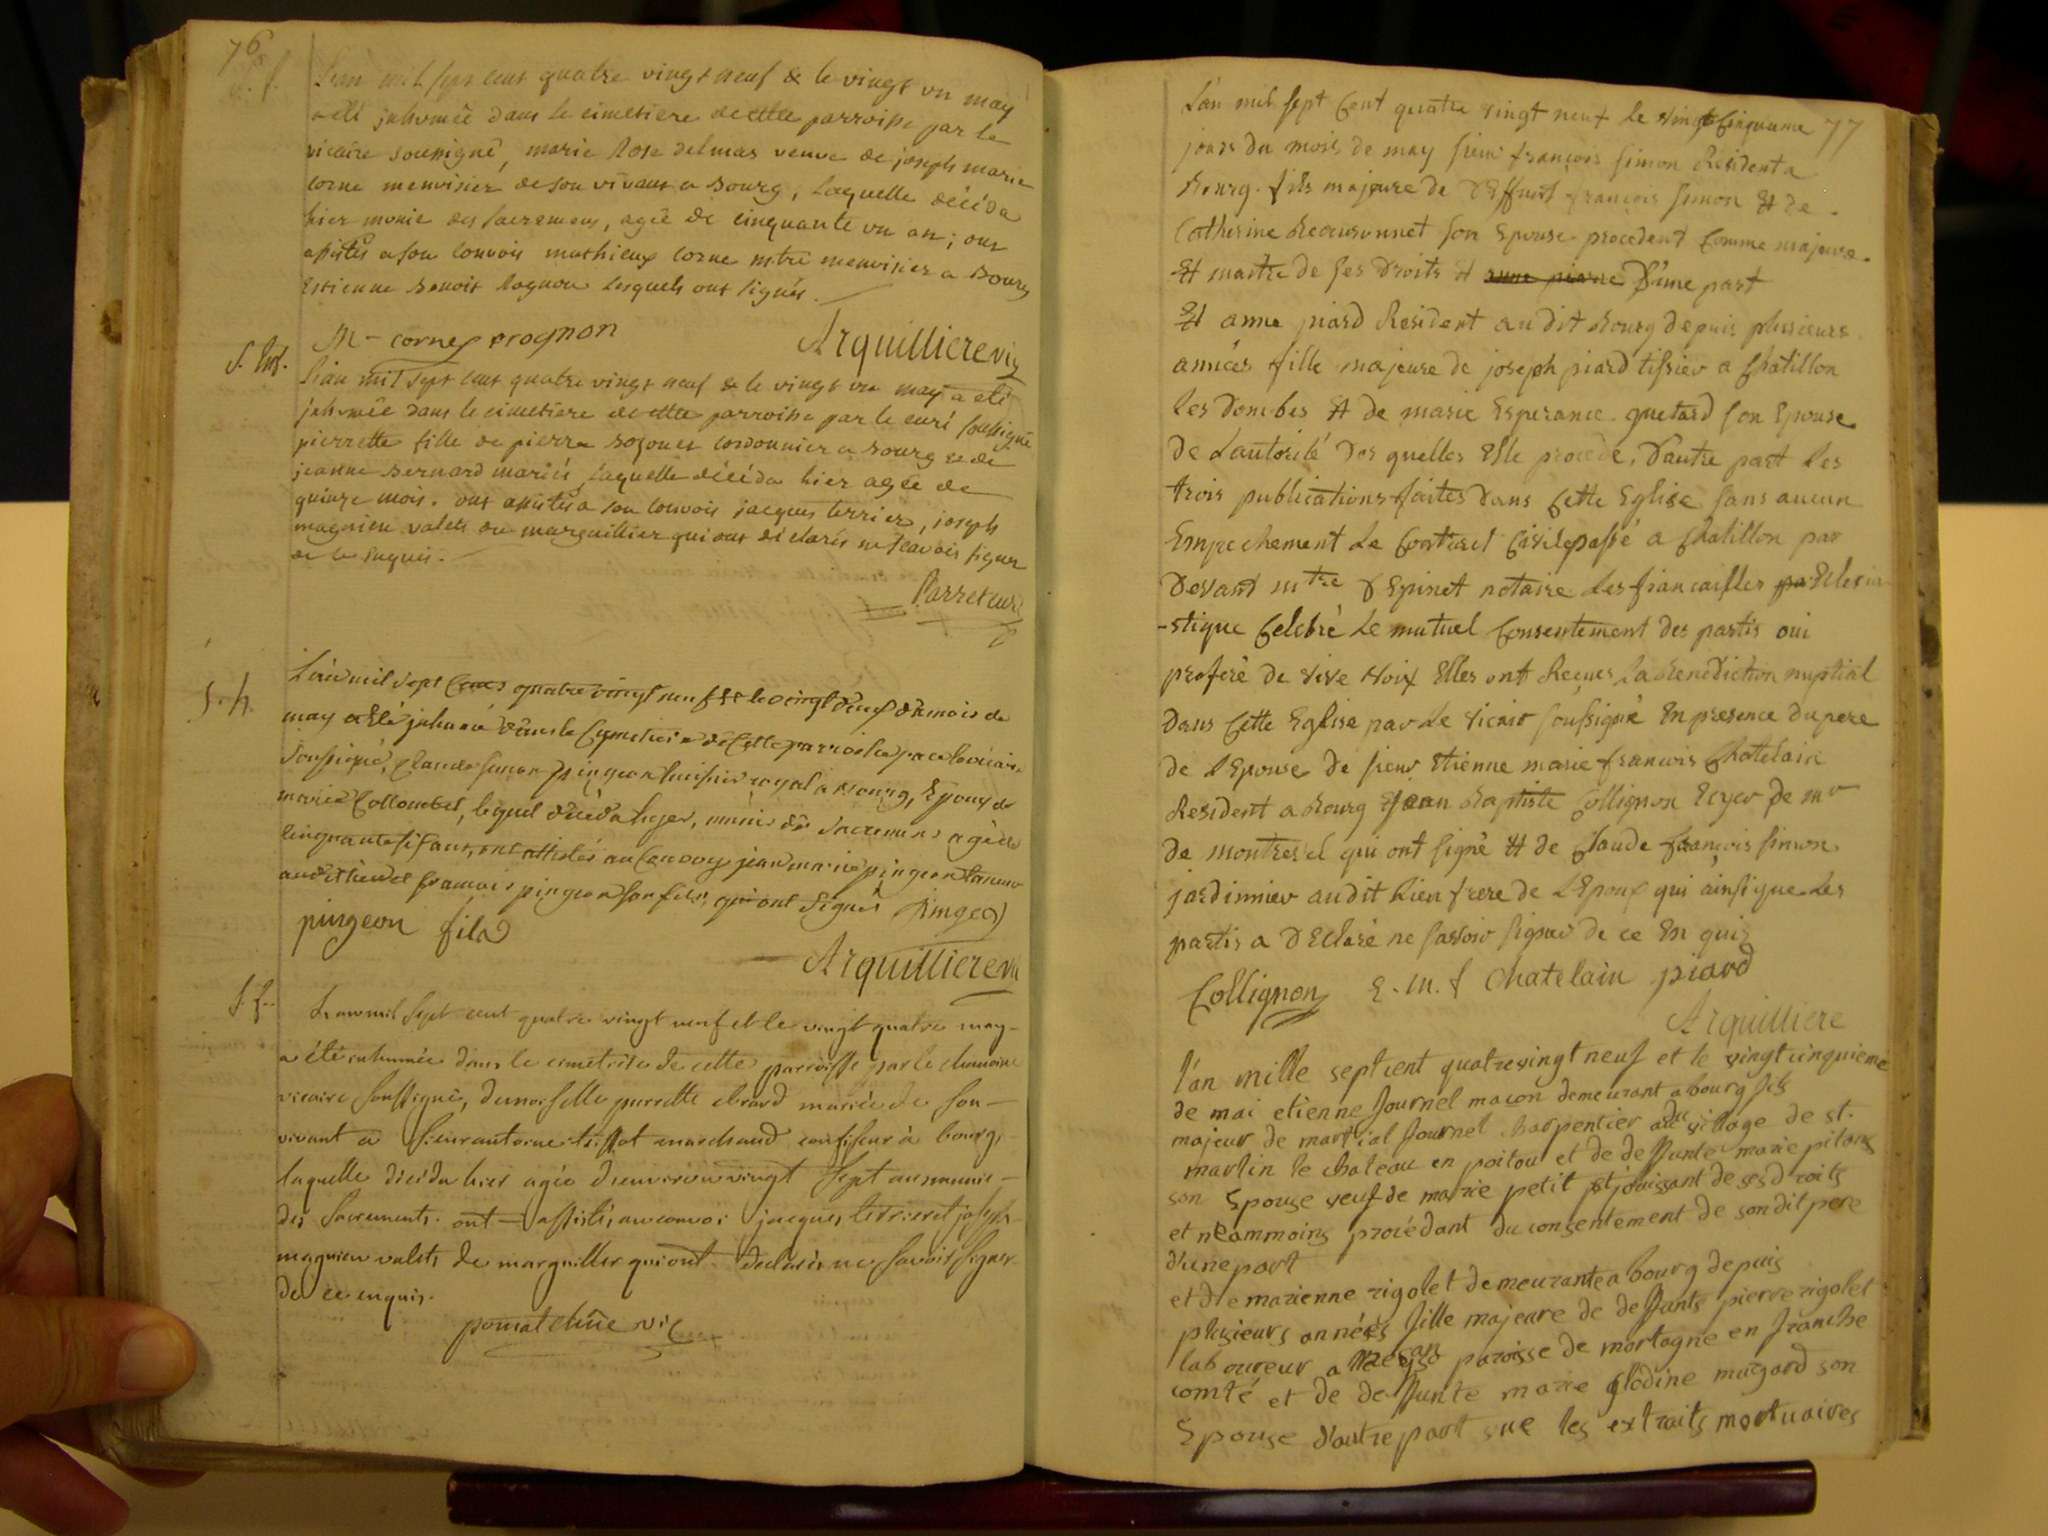 76
L'an mil sept cent quatre vingt neuf & le vingt un may
a été inhumée dans le cimetiere de cette parroisse par le
vicaire soussigné, marie Rose delmas veuve de joseph marie
corne menuisier de son vivant a Bourg, laquelle décéda
hier munie des sacremens, agée de cinquante un an; ont
assistés a son convois mathieux corne mtre menuisier a Bourg
Estienne Benoit Rognon lesquels ont signés.
M - corne prognon Arquilliere vic
L'an mil sept cent quatre vingt neuf & le vingt un may a été
inhumée dans le cimetiere de cette parroisse par le curé soussigné
pierrette fille de pierre cordonnier a Bourg et de
jeanne Bernard mariés, laquelle décéda hier agée de
quinze mois. ont assistés a son convois jacques terrier, joseph
magnien valets du marguillier qui ont déclarés ne scavoir signer
de ce enquis.
S. h.
L'an mil sept cent quatre vingt neuf & le vingt deux du mois de
may a été inhumé dans le Cymetiere de Cette parroisse par le vicaire
soussigné, Claude pingeon huissier royal a Bourg, Epoux de
marie Collombet, lequel décéda hyer, munis des Sacremens agé de
cinquante six ans, ont assistés au Convoy jean marie pingeon
audit lieu et françois pingeon son fils, qui ont signés Pingeon
pingeon fils
Arquilliere vic
L'an mil sept cent quatre vingt neuf et le vingt quatre may
a été inhumée dans le cimetiere de cette parroisse par le chanoine
vicaire soussigné, demoiselle pierrette ebrard mariée de son
vivant a sieur antoine tissot marchand confiseur à bourg,
laquelle décéda hier agée d'environ vingt sept ans munie
des sacrements. ont assistés au convoi jacques terrier et joseph
magnien valets de marguillier qui ont déclarés ne savoir signer
de ce enquis.
77
L'an mil sept Cent quatre vingt neuf le vingt Cinquieme
jour du mois de may sieur françois simon Résident a
Bourg. fils majeure de Deffunt françois simon Et de
Catherine son Epouse procedent Comme majeure
Et maitre de ses Droits Et D'une part
Et anne piard Résident au dit Bourg depuis plusieurs
années fille majeure de joseph piard tissier a Chatillon
les Dombes Et de marie Esperance guetard son Epouse
De Lautorité Des quelles Elle procede, D'autre part les
trois publications faites Dans Cette Eglise sans aucun
Empechement Le Contract Civile passé a Chatillon par
Devant mtre D Epinet notaire Les fiancailles Eclesia
-stique Celebré Le mutuel Consentement des partis oui
proferé de vive Voix Elles ont Reçues La Benediction nuptial
Dans Cette Eglise par Le vicaire soussigné En presence du pere
de L'Epouse de sieur Etienne marie françois Chatelain
Resident a Bourg jean Baptiste Collignon Ecyer de mr
de montrevel qui ont signé Et de Claude françois simon
jardinnier au dit Lieu frere de L'Epoux qui ainsi que les
partis a Declaré ne sçavoir signer de ce En quis
Collignon E. m. f Chatelain piard
Arquilliere
l'an mille sept cent quatre vingt neuf et le vingt cinquieme
de mai etienne journel maçon demeurant a bourg fils
majeur de martial journel charpentier du village de st.
martin le chateau en poitou et de deffunte marie pitans
son Epouse veuf de marie petit et jouissant de ses droits
et néammoins procédant du consentement de son dit pere
d'une part
et de marienne rigolet demeurante a bourg depuis
plusieurs années fille majeure de deffunts pierre rigolet
laboureur a paroisse de mortagne en franche
comté et de deffunte marie glodine mugard son
Epouse d'autre part vue les extraits mortuaires